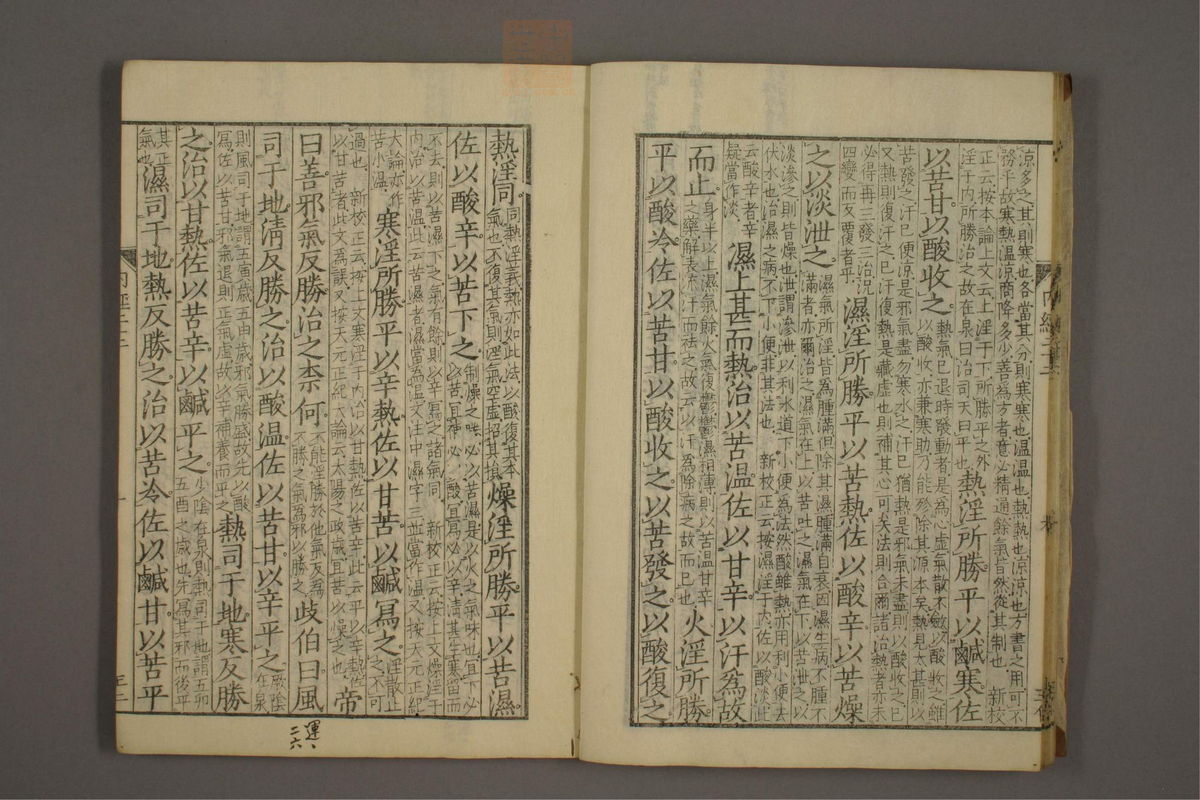 涼多之其則寒也各當其分則寒寒也温温也熱熱也涼涼也方書之用可不
務乎故寒熱温涼商降多少善為方者意必精通餘氣皆然從其制也 新校
正云按本論上文云上淫于下所勝平之外
淫于内所勝治之故在泉曰治司天曰平也 熱淫所勝平以鹹寒佐
以苦甘以酸收之 熱氣已退時發動者是為心虚氣散不斂以酸收之雖
以酸收亦兼寒助乃能殄除其源本矣熱見太甚則以
苦發之汗已便涼是邪氣盡勿寒水之汗已猶熱是邪氣未盡則以酸收之已
又熱則復汗之已汗復熱是藏虚也則補其心可矣法則合爾諸治熱者亦未
必得再三發三治況
四變而反覆者乎 濕淫所勝平以苦熱佐以酸辛以苦燥
之以淡泄之 濕氣所淫皆為腫滿但除其濕腫滿自衰因濕生病不腫不
滿者亦爾治之濕氣在上以苦吐之濕氣在下以苦泄之以
淡滲之則皆燥也泄謂滲泄以利水道下小便為法然酸雖熱亦用利小便去
伏水也治濕之病不下小便非其法也 新校正云按濕淫于内佐以酸淡此
云酸辛者辛
疑當作淡 濕上甚而熱治以苦温佐以甘辛以汗為故
而止 身半以上濕氣餘火氣復鬱鬱濕相薄則以苦温甘辛
之藥解表流汗而袪之故云以汗為除病之故而已也 火淫所勝
平以酸冷佐以苦甘以酸收之以苦發之以酸復之
熱淫同 同熱淫義熱亦如此法以酸復其本
氣也不復其氣則淫氣空虚招其損 燥淫所勝平以苦濕
佐以酸辛以苦下之 制燥之法必以苦濕是以火之氣味也宜下必
以苦宜補必以酸宜寫必以辛清甚生寒留而
不去則以苦濕下之氣有餘則以辛寫之諸氣同 新校正云按上文燥淫于
内治以苦温此云苦濕者濕當為温文注中濕字三並當作温又按天元正紀
大論亦作
苦小温 寒淫所勝平以辛熱佐以甘苦以鹹寫之 淫散止
之不可
過也 新校正云按上文寒淫于内治以甘熱佐以苦辛此云平以辛熱佐
以甘苦者此文為誤又按天元正紀大論云太陽之政歲宜苦以燥之也 帝
曰善邪氣反勝治之柰何 不能淫勝於他氣反為
不勝之氣為邪以勝之 歧伯曰風
司于地清反勝之治以酸温佐以苦甘以辛平之 厥陰
在泉
則風司于地謂五寅歲五申歲邪氣勝盛故先以酸
寫佐以苦甘邪氣退則正氣虚故以辛補養而平之 熱司于地寒反勝
之治以甘熱佐以苦辛以鹹平之 少陰在泉則熱司于地謂五卯
五酉之歲也先寫其邪而後平
其正
氣也 濕司于地熱反勝之治以苦冷佐以鹹甘以苦平
運、
二六